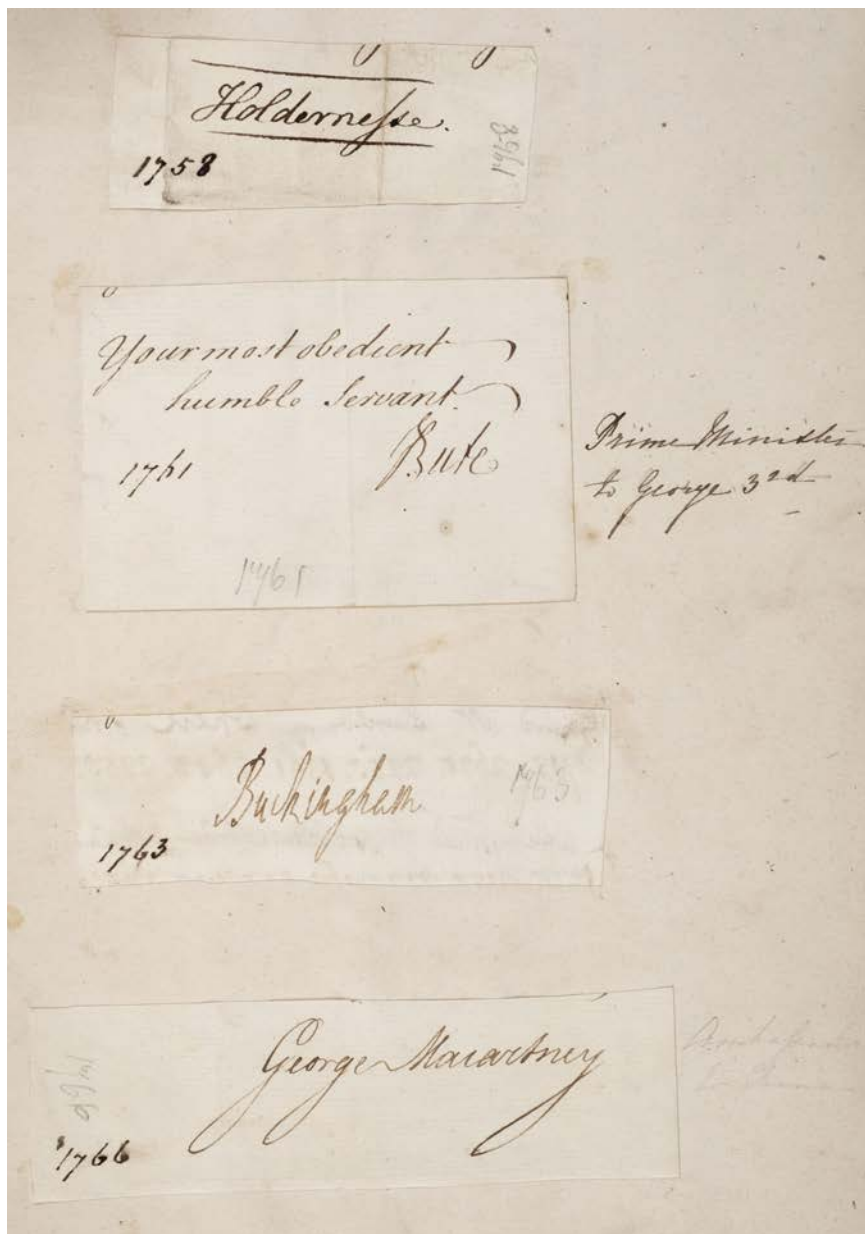 Holderneſse.
1758
1758
Your most obedient
humble Servant.
Bute
1761
1761
Prime Minister
to George 3rd
Buckingham
1763
1763
George Macartney
1766
1766